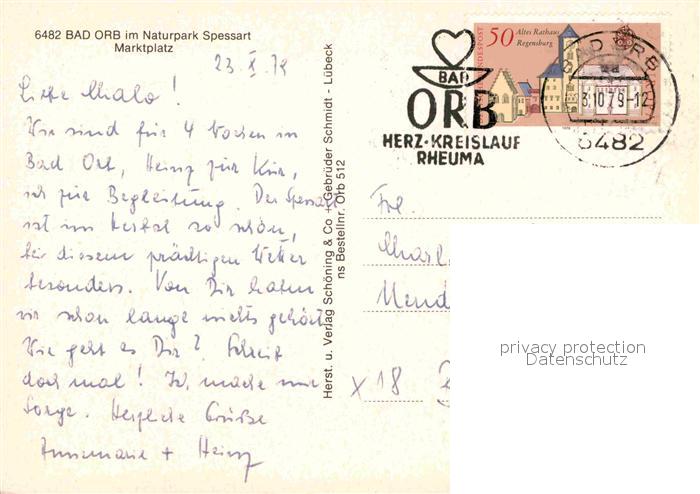 6482 BAD ORB im Naturpark Spessart
Marktplatz
23. X. 79
Liebe Malo!
Wir sind für 4 Wochen in
Bad Orb, Heinz zur Kur,
ich zur Begleitung. Der Spessart
ist im Herbst so schön,
bei diesem prächtigen Wetter
besonders. Von Dir haben
wir schon lange nichts gehört
Wie geht es Dir? Schreib
doch mal! Ich mache mir
Sorge. Herzliche Grüße
Annemarie + Heinz
Herst. u. Verlag Schöning & Co + Gebrüder Schmidt - Lübeck
ns Bestellnr. Orb 512
BAD
ORB
HERZ·KREISLAUF
RHEUMA
50 Altes Rathaus
Regensburg
BUNDESPOST
BAD ORB
3.10.79-12
6482
Frl.
X 18
privacy protection
Datenschutz